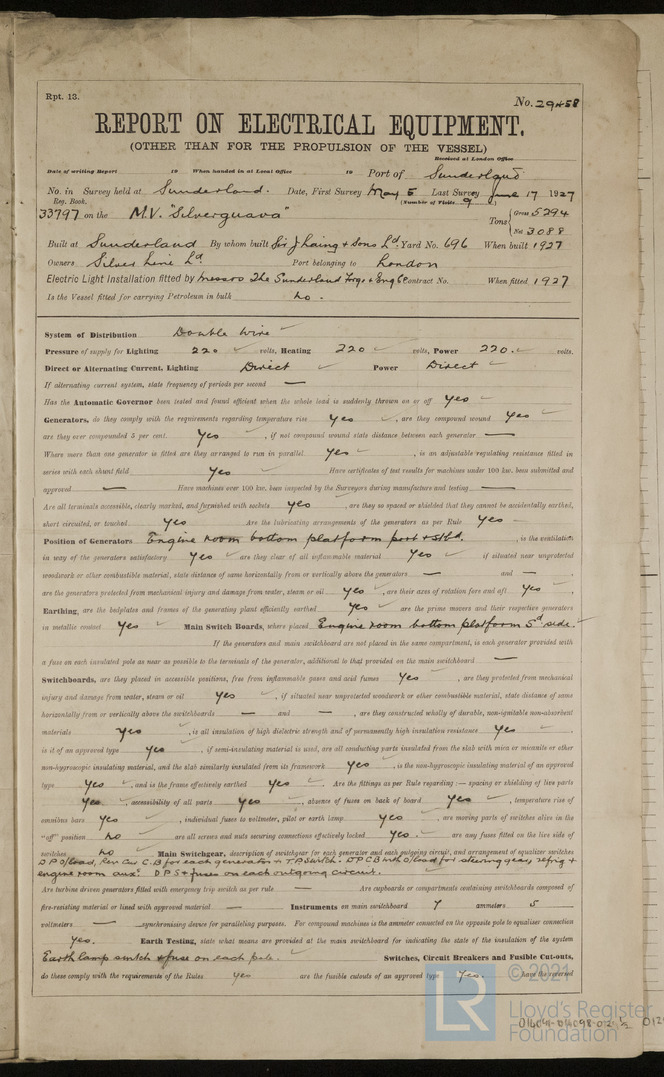 Rpt. 13.
No. 29458
REPORT ON ELECTRICAL EQUIPMENT.
(OTHER THAN FOR THE PROPULSION OF THE VESSEL)
Received at London Office
Date of writing Report 19 When handed in at Local Office 19 Port of Sunderland
No. in Survey held at Sunderland. Date, First Survey May 5 Last Survey June 17 1927
Reg. Book. (Number of Visits 9 )
33797 on the M.V. "Silverguava" Tons { Gross 5294
Net 3088
Built at Sunderland By whom built Sir J Laing & Sons Ld. Yard No. 696 When built 1927
Owners Silver Line Ld. Port belonging to London
Electric Light Installation fitted by Messrs The Sunderland Forge & Eng Co Contract No. When fitted 1927
Is the Vessel fitted for carrying Petroleum in bulk no.
System of Distribution Double wire
Pressure of supply for Lighting 220 volts, Heating 220 volts, Power 220. volts.
Direct or Alternating Current, Lighting Direct Power Direct
If alternating current system, state frequency of periods per second —
Has the Automatic Governor been tested and found efficient when the whole load is suddenly thrown on or off Yes
Generators, do they comply with the requirements regarding temperature rise Yes , are they compound wound Yes
are they over compounded 5 per cent. Yes , if not compound wound state distance between each generator —
Where more than one generator is fitted are they arranged to run in parallel. Yes , is an adjustable regulating resistance fitted in
series with each shunt field Yes Have certificates of test results for machines under 100 kw. been submitted and
approved — Have machines over 100 kw. been inspected by the Surveyors during manufacture and testing —
Are all terminals accessible, clearly marked, and furnished with sockets yes , are they so spaced or shielded that they cannot be accidentally earthed,
short circuited, or touched Yes Are the lubricating arrangements of the generators as per Rule Yes
Position of Generators Engine room bottom platform port & Stbd. , is the ventilation
in way of the generators satisfactory Yes are they clear of all inflammable material Yes if situated near unprotected
woodwork or other combustible material, state distance of same horizontally from or vertically above the generators — and — ,
are the generators protected from mechanical injury and damage from water, steam or oil Yes , are their axes of rotation fore and aft Yes ,
Earthing, are the bedplates and frames of the generating plant efficiently earthed Yes are the prime movers and their respective generators
in metallic contact Yes Main Switch Boards, where placed Engine room bottom platform Sd side.
If the generators and main switchboard are not placed in the same compartment, is each generator provided with
a fuse on each insulated pole as near as possible to the terminals of the generator, additional to that provided on the main switchboard —
Switchboards, are they placed in accessible positions, free from inflammable gases and acid fumes Yes , are they protected from mechanical
injury and damage from water, steam or oil Yes , if situated near unprotected woodwork or other combustible material, state distance of same
horizontally from or vertically above the switchboards — and — , are they constructed wholly of durable, non-ignitable non-absorbent
materials Yes , is all insulation of high dielectric strength and of permanently high insulation resistance Yes ,
is it of an approved type Yes , if semi-insulating material is used, are all conducting parts insulated from the slab with mica or micanite or other
non-hygroscopic insulating material, and the slab similarly insulated from its framework Yes , is the non-hygroscopic insulating material of an approved
type Yes , and is the frame effectively earthed Yes Are the fittings as per Rule regarding :— spacing or shielding of live parts
Yes , accessibility of all parts Yes , absence of fuses on back of board Yes , temperature rise of
omnibus bars Yes , individual fuses to voltmeter, pilot or earth lamp Yes , are moving parts of switches alive in the
"off" position no are all screws and nuts securing connections effectively locked Yes. are any fuses fitted on the live side of
switches no Main Switchgear, description of switchgear for each generator and each outgoing circuit, and arrangement of equalizer switches
D P O/load, Rev Cur C.B for each generator & T.P Switch. D P C B with O/load for steering gear, refrig &
engine room aux. D P S & fuses on each outgoing circuit.
Are turbine driven generators fitted with emergency trip switch as per rule — Are cupboards or compartments containing switchboards composed of
fire-resisting material or lined with approved material — Instruments on main switchboard 7 ammeters 5
voltmeters — synchronising device for paralleling purposes. For compound machines is the ammeter connected on the opposite pole to equaliser connection
Yes. Earth Testing, state what means are provided at the main switchboard for indicating the state of the insulation of the system
Earth lamp switch & fuse on each pole. Switches, Circuit Breakers and Fusible Cut-outs,
do these comply with the requirements of the Rules Yes are the fusible cutouts of an approved type Yes. have the reversed
© 2021
LR
Lloyd's Register
Foundation
014091-014098-0121 1/2